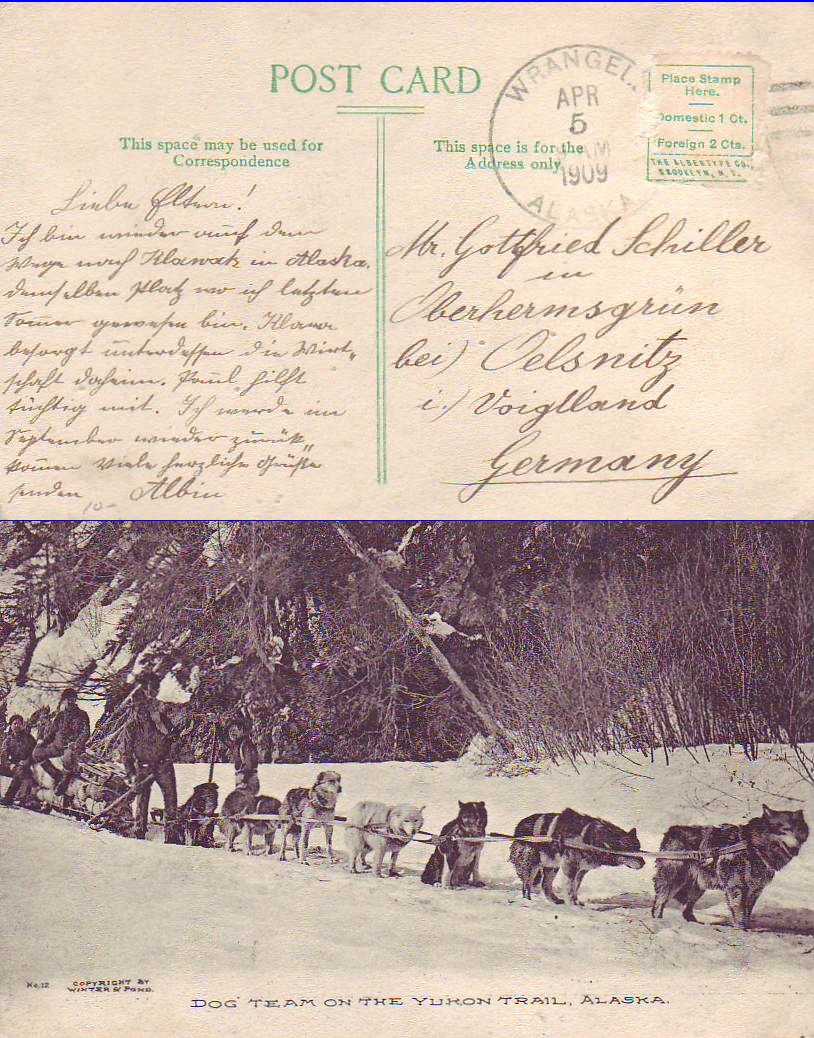 POST CARD
This space may be used for
Correspondence
This space is for the
Address only
WRANGEL
APR
5
AM
1909
ALASKA
Place Stamp
Here.
Domestic 1 Ct.
Foreign 2 Cts.
THE ALBERTYPE CO.,
BROOKLYN, N. Y.
Liebe Eltern!
Ich bin wieder auf dem
Wege nach Klawak in Alaska.
demselben Platz wo ich letzten
Som̄er gewesen bin. Klara
besorgt unterdessen die Wirt„
schaft daheim. Paul hilft
tüchtig mit. Ich werde im
September wieder zurük„
kom̄en Viele herzliche Grüße
senden Albin
10-
Mr. Gottfried Schiller
in
Oberhermsgrün
bei) Oelsnitz
i.) Voigtland
Germany
No. 12
COPYRIGHT BY
WINTER & POND.
DOG TEAM ON THE YUKON TRAIL, ALASKA.